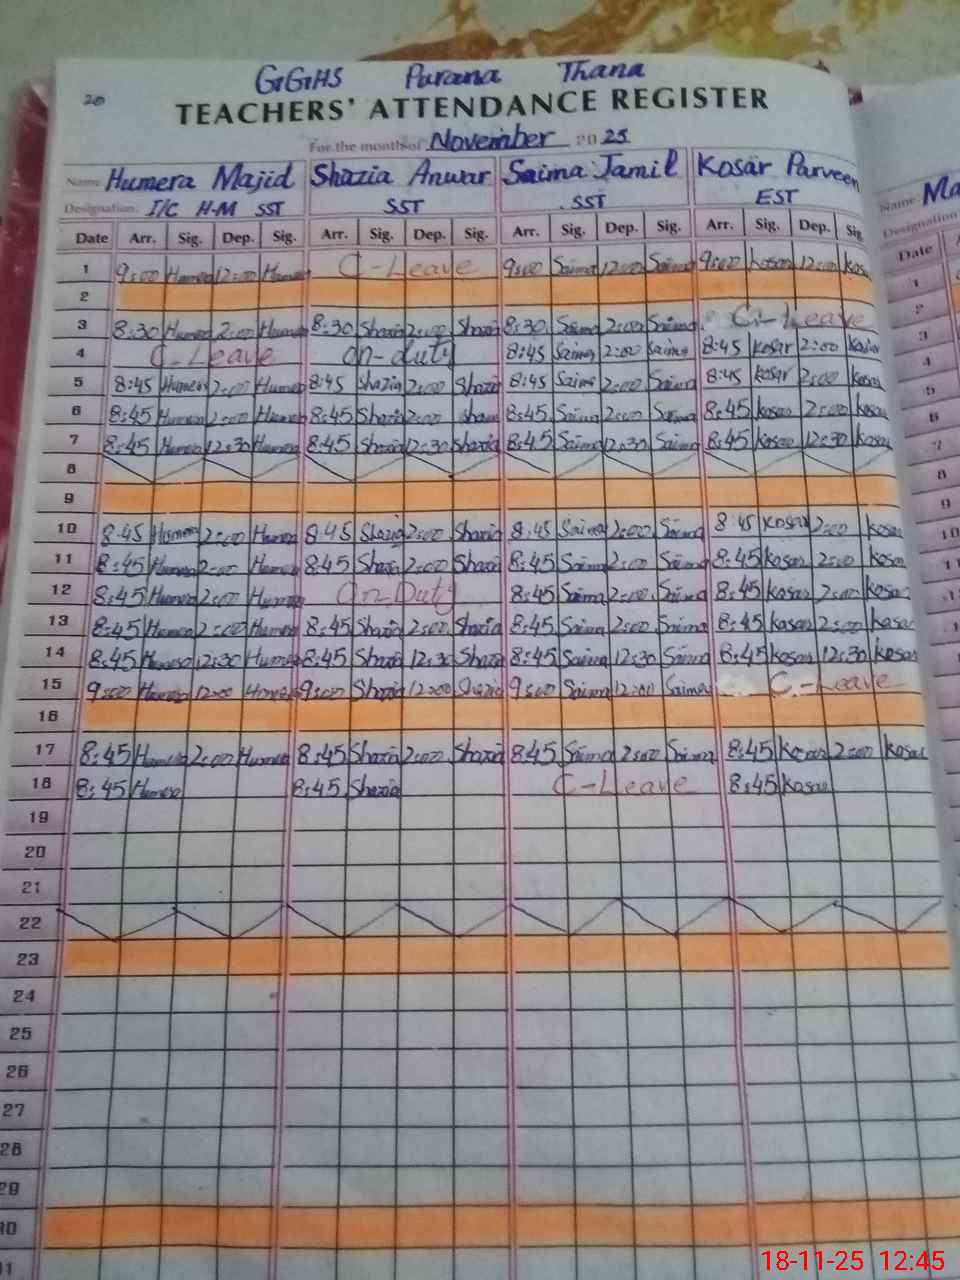 20
GGHS Purana Thana
TEACHERS' ATTENDANCE REGISTER
For the month of November 2025
Name Humera Majid Shazia Anwar Saima Jamil Kosar Parveen Name: Ma
Designation: I/C H-M SST SST SST EST Designation
Date Arr. Sig. Dep. Sig. Arr. Sig. Dep. Sig. Arr. Sig. Dep. Sig. Arr. Sig. Dep. Sig Date
1 9:00 Humera 12:00 Humera C-Leave 9:00 Saima 12:00 Saima 9:00 Kosar 12:00 Kosa 1
2 2
3 8:30 Humera 2:00 Humera 8:30 Shazia 2:00 Shazia 8:30 Saima 2:00 Saima C-Leave 3
4 C-Leave on-duty 8:45 Saima 2:00 Saima 8:45 Kosar 2:00 Kosar 4
5 8:45 Humera 2:00 Humera 8:45 Shazia 2:00 Shazia 8:45 Saima 2:00 Saima 8:45 Kosar 2:00 Kosa 5
6 8:45 Humera 2:00 Humera 8:45 Shazia 2:00 Shazia 8:45 Saima 2:00 Saima 8:45 Kosar 2:00 Kosa 6
7 8:45 Humera 12:30 Humera 8:45 Shazia 12:30 Shazia 8:45 Saima 12:30 Saima 8:45 Kosar 12:30 Kosar 7
8 8
9 9
10 8:45 Humera 2:00 Humera 8:45 Shazia 2:00 Shazia 8:45 Saima 2:00 Saima 8:45 Kosar 2:00 Kosar 10
11 8:45 Humera 2:00 Humera 8:45 Shazia 2:00 Shazia 8:45 Saima 2:00 Saima 8:45 Kosar 2:00 Kosar 11
12 8:45 Humera 2:00 Humera On Duty 8:45 Saima 2:00 Saima 8:45 Kosar 2:00 Kosar
13 8:45 Humera 2:00 Humera 8:45 Shazia 2:00 Shazia 8:45 Saima 2:00 Saima 8:45 Kosar 2:00 Kosar
14 8:45 Humera 12:30 Humera 8:45 Shazia 12:30 Shazia 8:45 Saima 12:30 Saima 8:45 Kosar 12:30 Kosar
15 9:00 Humera 12:00 Humera 9:00 Shazia 12:00 Shazia 9:00 Saima 12:00 Saima C-Leave
16
17 8:45 Humera 2:00 Humera 8:45 Shazia 2:00 Shazia 8:45 Saima 2:00 Saima 8:45 Kosar 2:00 Kosar
18 8:45 Humera 8:45 Shazia C-Leave 8:45 Kosar
19
20
21
22
23
24
25
26
27
28
29
30
31
18-11-25 12:45